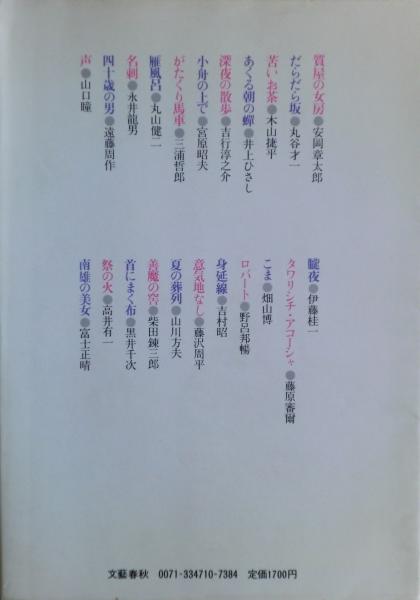 質屋の女房●安岡章太郎
だらだら坂●丸谷才一
苦いお茶●木山捷平
あくる朝の蟬●井上ひさし
深夜の散歩●吉行淳之介
小舟の上で●宮原昭夫
がたくり馬車●三浦哲郎
雁風呂●丸山健二
名刺●永井龍男
四十歳の男●遠藤周作
声●山口瞳
朧夜●伊藤桂一
タワリシチ・アコーシャ●藤原審爾
こま●畑山博
ロバート●野呂邦暢
身延線●吉村昭
意気地なし●藤沢周平
夏の葬列●山川方夫
善魔の窖●柴田錬三郎
首にまく布●黒井千次
祭の火●高井有一
南雄の美女●富士正晴
文藝春秋 0071-334710-7384 定価1700円